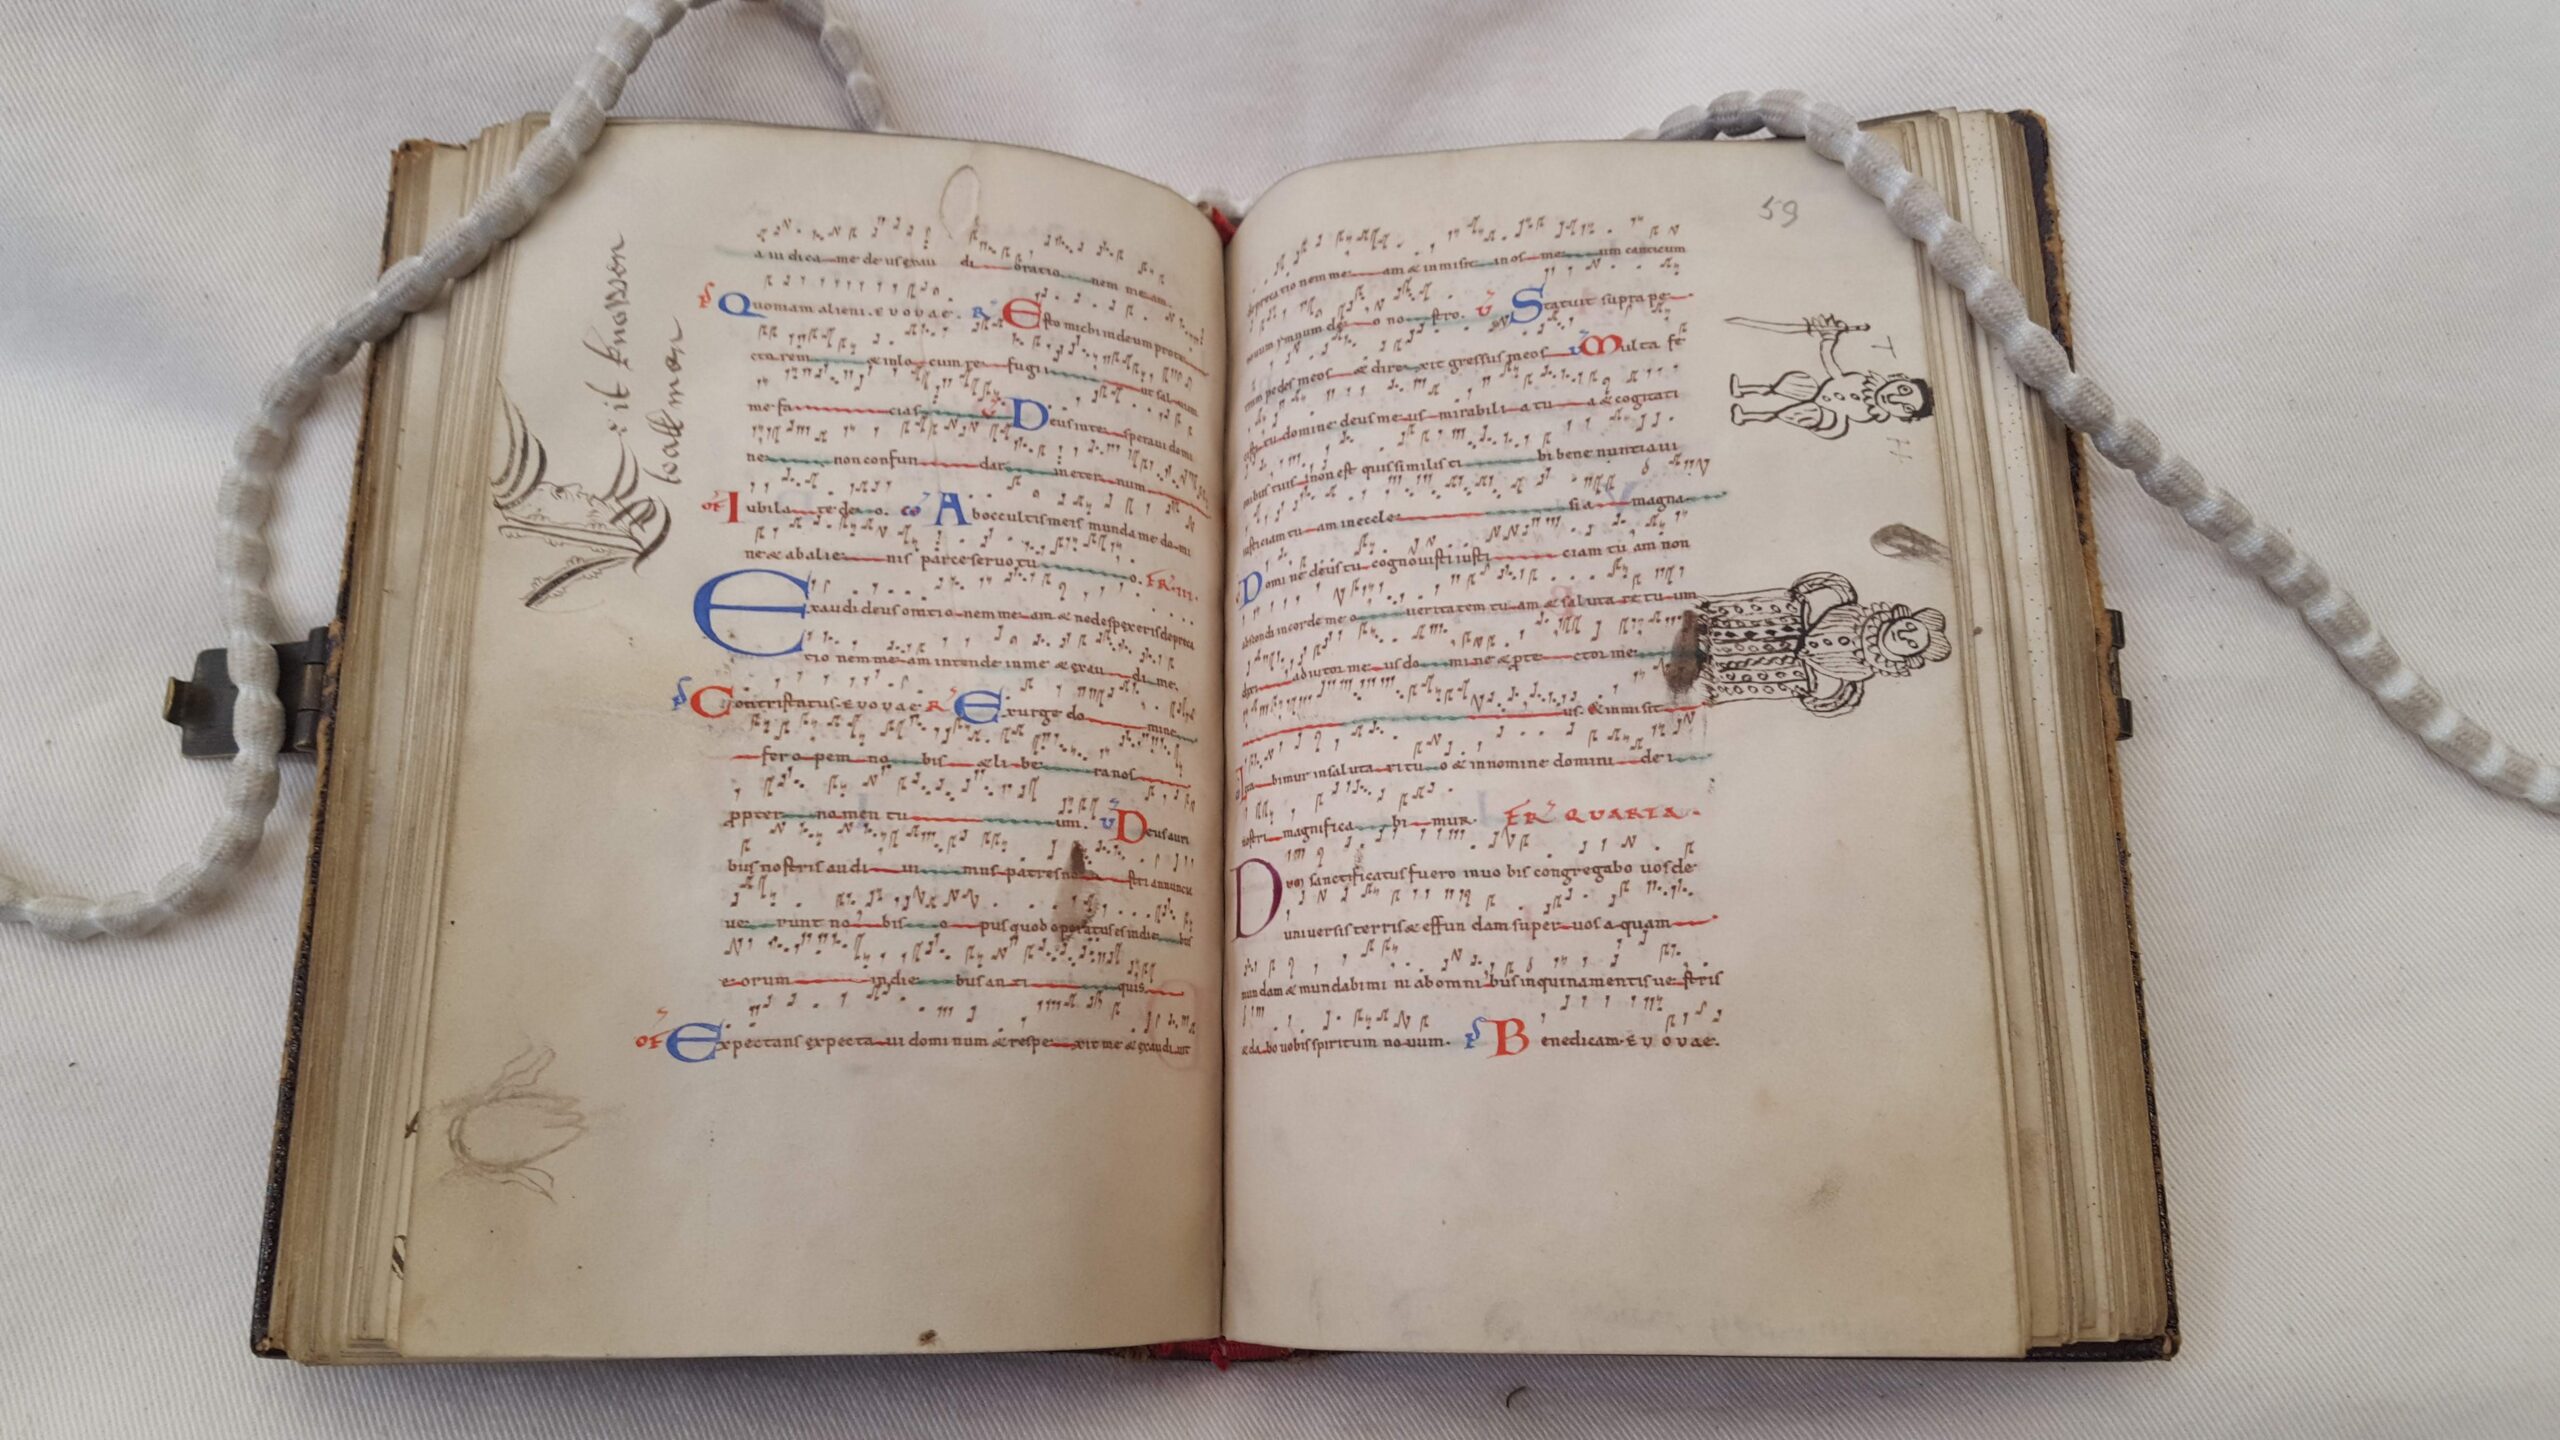 it knowen
all men
a iu dica me deus exau di oratio nem meam.
Quoniam alieni. E V O V A E. R Esto michi indeum prote
ctorem & inlo cum re fugii ut saluum
me fa cias V Deus inte speraui domi
ne non confun dar in eter num
of Iubila te deo. co Ab occultis meis munda me do mi
ne & ab alie nis parce seruo tu o. FR III.
Exaudi deus oratio nem me am & ne despexeris depreca
tio nem me am intende in me & exau di me.
Contristatus. E V O V A E R Exurge do mine
fer o pem no bis & li be ra nos
propter nomen tu um. V Deus auri
bus nostris audi ui mus patres no stri annuncia
ue runt no bis o pus quod operatus es in die bus
e orum in die bus an ti quis.
of Expectans expecta ui domi num & respe xit me & exaudi uit
59
depreca tio nem me am & in misit in os me um canticum
nouum ymnum de o no stro. V Statuit supra pe
tram pedes meos & dire xit gressus meos V Multa fe
cisti tu domine deus me us mirabili a tu a & cogitati
onibus tuis non est quis similis ti bi bene nuntiaui
iusticiam tu am in eccle si a magna
Domi ne deus tu cognouisti iusti ciam tu am non
abscondi in corde me o ueritatem tu am & saluta re tu um
dixi adiutor me us do mi ne & prote ctor me
us. & inmisit
Laeta bimur in saluta ri tu o & in nomine domini de i
nostri magnifica bi mur. FR QUARTA.
Dum sanctificatus fuero in uo bis congregabo uos de
uniuersis terris & effun dam super uos a quam
mundam & mundabimi ni ab omni bus inquinamentis ue stris
& da bo uobis spiritum nouum. Benedicam. E V O V A E.